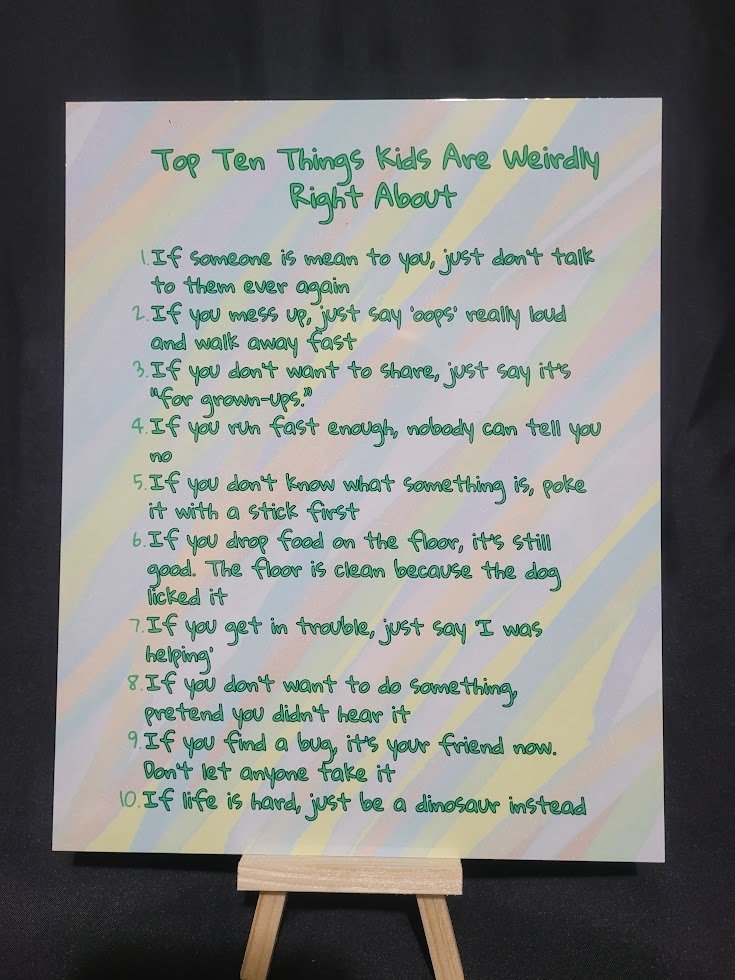 Top Ten Things Kids Are Weirdly
Right About
1. If someone is mean to you, just don't talk
to them ever again
2. If you mess up, just say 'oops' really loud
and walk away fast
3. If you don't want to share, just say it's
"for grown-ups."
4. If you run fast enough, nobody can tell you
no
5. If you don't know what something is, poke
it with a stick first
6. If you drop food on the floor, it's still
good. The floor is clean because the dog
licked it
7. If you get in trouble, just say 'I was
helping'
8. If you don't want to do something,
pretend you didn't hear it
9. If you find a bug, it's your friend now.
Don't let anyone take it
10. If life is hard, just be a dinosaur instead